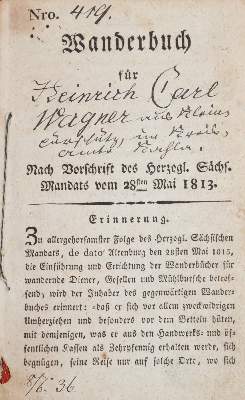 Nro. 419.
Wanderbuch
für
Heinrich Carl
Wagner aus Klein
im Kreis
amte Kahla.
Nach Vorschrift des Herzogl. Sächs.
Mandats vom 28sten Mai 1813.
Erinnerung.
Zu allergehorsamster Folge des Herzogl. Sächsischen
Mandats, de dato Altenburg den 28sten Mai 1813,
die Einführung und Errichtung der Wanderbücher für
wandernde Diener, Gesellen und Mühlbursche betref-
fend, wird der Inhaber des gegenwärtigen Wander-
buches erinnert: daß er sich vor allem zweckwidrigen
Umherziehen und besonders vor dem Betteln hüten,
mit demjenigen, was er aus den Handwerks- und öf-
fentlichen Kassen als Zehrpfennig erhalten werde, sich
begnügen, seine Reise nur auf solche Orte, wo sich
36